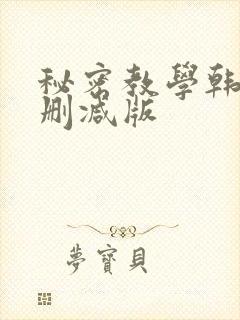 秘密教學韩
删减版
夢寶貝